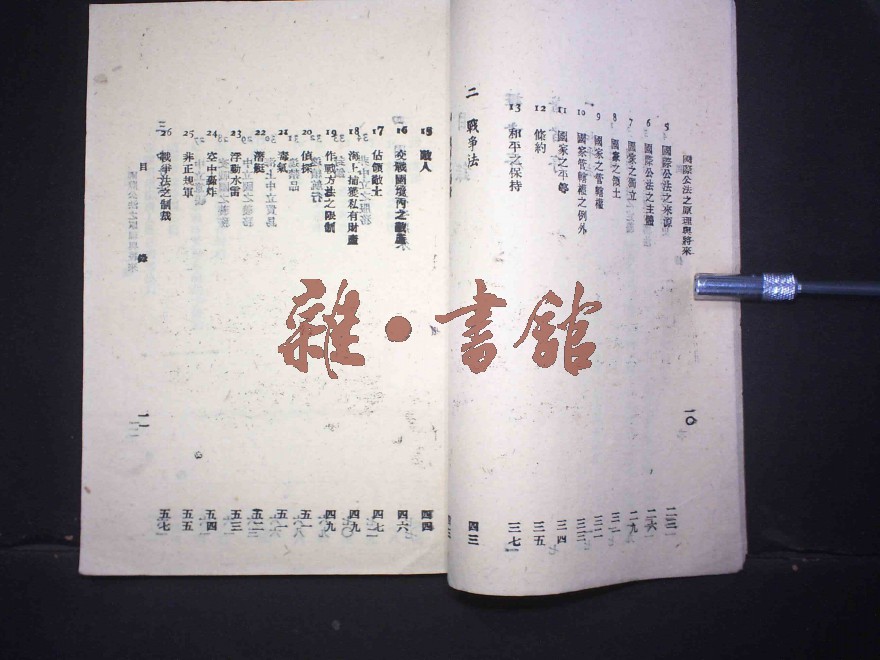 國際公法之原理與將來
一〇
5 國際公法之來源
6 國際公法之主體 二六
7 國家之獨立 二九
8 國家之領土
9 國家之管轄權 三二
10 國家管轄權之例外 三三
11 國家之平等 三四
12 條約 三五
13 和平之保持 三七
二 戰爭法 四三
15 敵人 四四
16 交戰國境內之敵產 四六
17 佔領敵土 四七
18 海上捕獲私有財產 四九
19 作戰方法之限制 四九
20 偵探 五一
21 毒氣 五一
22 潛艇 五二
23 浮動水雷 五三
24 空中轟炸 五四
25 非正規軍 五五
26 戰爭法之制裁 五七
目錄
一一
雜·書館